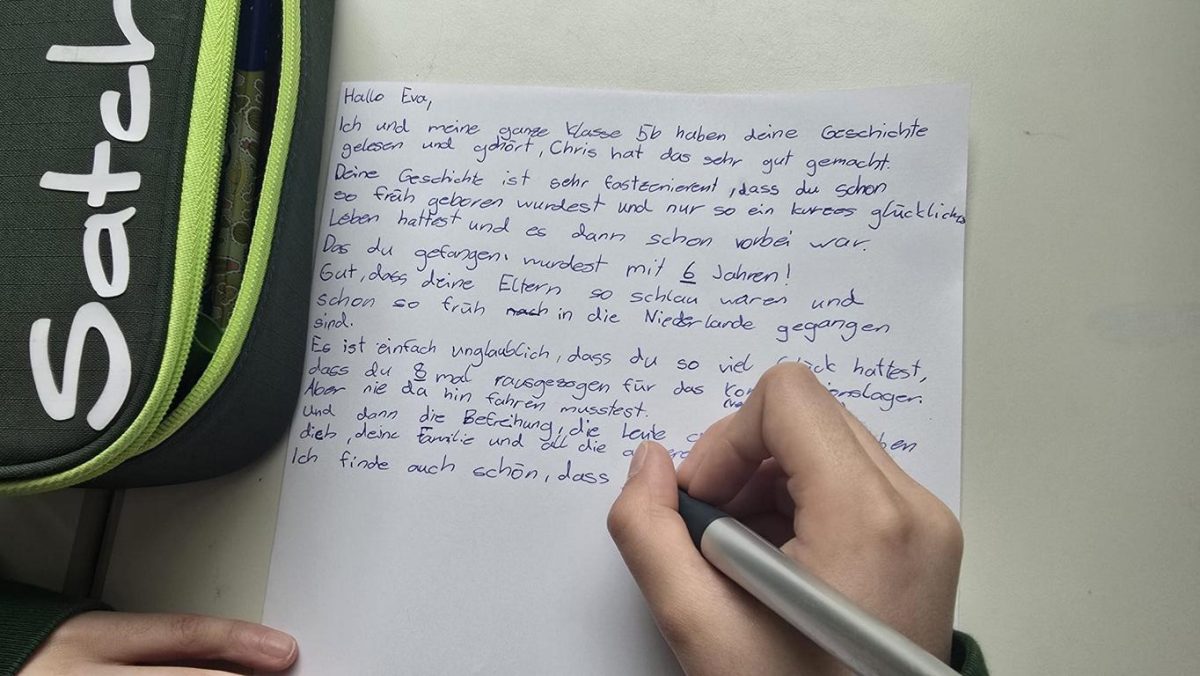 Satch
Hallo Eva,
Ich und meine ganze Klasse 5b haben deine Geschichte
gelesen und gehört, Chris hat das sehr gut gemacht.
Deine Geschichte ist sehr fastecnierent, dass du schon
so früh geboren wurdest und nur so ein kurzes glückliches
Leben hattest und es dann schon vorbei war.
Das du gefangen wurdest mit 6 Jahren!
Gut, dass deine Eltern so schlau waren und
schon so früh nach in die Niederlande gegangen
sind.
Es ist einfach unglaublich, dass du so viel hattest,
dass du 8 mal rausgezogen für das
Aber nie da hin fahren musstest.
und dann die Befreihung, die Leute
dich, deine Familie und all die
Ich finde auch schön, dass